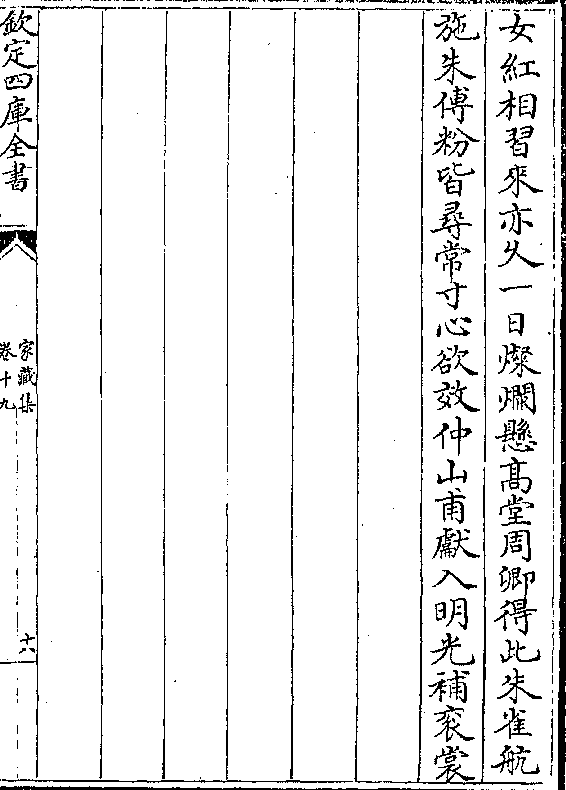 女紅相習來亦久一日燦爛懸髙堂周卿得此朱雀航
施朱傅粉皆尋常寸心欲效仲山甫獻入明光補衮裳
欽定四庫全書
家藏集
卷十九
十六